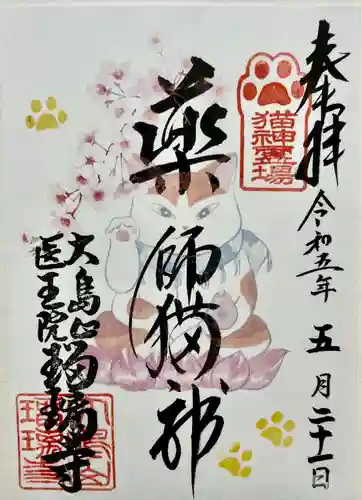 奉拝
令和五年
五月二十一日
猫神霊場
薬師猫神
大島山
医王院
瑠璃寺